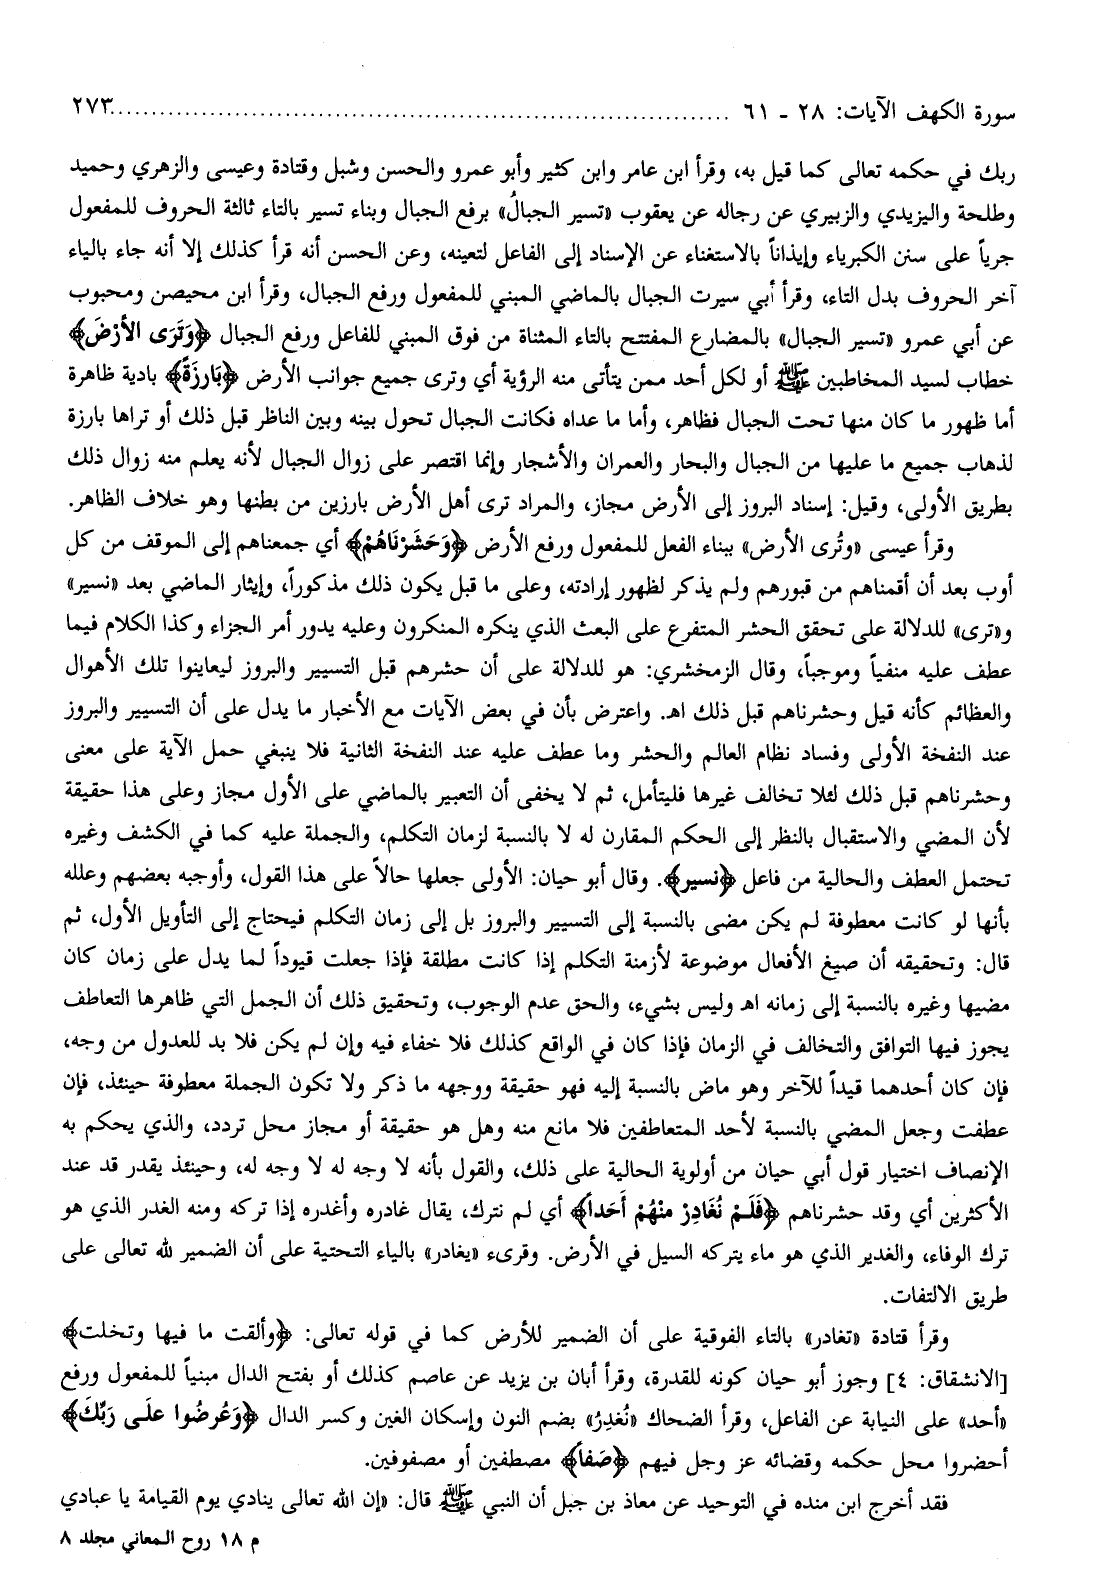 سورة الكهف الآيات: ٢٨ - ٦١ ........................................................................ ٢٧٣
ربك في حكمه تعالى كما قيل به، وقرأ ابن عامر وابن كثير وأبو عمرو والحسن وشبل وقتادة وعيسى والزهري وحميد
وطلحة واليزيدي والزبيري عن رجاله عن يعقوب «تسير الجبالُ» برفع الجبال وبناء تسير بالتاء ثالثة الحروف للمفعول
جرياً على سنن الكبرياء وإيذاناً بالاستغناء عن الإسناد إلى الفاعل لتعينه، وعن الحسن أنه قرأ كذلك إلا أنه جاء بالياء
آخر الحروف بدل التاء، وقرأ أبي سيرت الجبال بالماضي المبني للمفعول ورفع الجبال، وقرأ ابن محيصن ومحبوب
عن أبي عمرو «تسير الجبال» بالمضارع المفتتح بالتاء المثناة من فوق المبني للفاعل ورفع الجبال ﴿وَتَرَى الأرْضَ﴾
خطاب لسيد المخاطبين ﷺ أو لكل أحد ممن يتأتى منه الرؤية أي وترى جميع جوانب الأرض ﴿بَارِزَةً﴾ بادية ظاهرة
أما ظهور ما كان منها تحت الجبال فظاهر، وأما ما عداه فكانت الجبال تحول بينه وبين الناظر قبل ذلك أو تراها بارزة
لذهاب جميع ما عليها من الجبال والبحار والعمران والأشجار وإنما اقتصر على زوال الجبال لأنه يعلم منه زوال ذلك
بطريق الأولى، وقيل: إسناد البروز إلى الأرض مجاز، والمراد ترى أهل الأرض بارزين من بطنها وهو خلاف الظاهر.
وقرأ عيسى «وتُرى الأرض» ببناء الفعل للمفعول ورفع الأرض ﴿وَحَشَرْنَاهُمْ﴾ أي جمعناهم إلى الموقف من كل
أوب بعد أن أقمناهم من قبورهم ولم يذكر لظهور إرادته، وعلى ما قبل يكون ذلك مذكوراً، وإيثار الماضي بعد «نسير»
و«ترى» للدلالة على تحقق الحشر المتفرع على البعث الذي ينكره المنكرون وعليه يدور أمر الجزاء وكذا الكلام فيما
عطف عليه منفياً وموجباً، وقال الزمخشري: هو للدلالة على أن حشرهم قبل التسيير والبروز ليعاينوا تلك الأهوال
والعظائم كأنه قيل وحشرناهم قبل ذلك اهـ. واعترض بأن في بعض الآيات مع الأخبار ما يدل على أن التسيير والبروز
عند النفخة الأولى وفساد نظام العالم والحشر وما عطف عليه عند النفخة الثانية فلا ينبغي حمل الآية على معنى
وحشرناهم قبل ذلك لئلا تخالف غيرها فليتأمل، ثم لا يخفى أن التعبير بالماضي على الأول مجاز وعلى هذا حقيقة
لأن المضي والاستقبال بالنظر إلى الحكم المقارن له لا بالنسبة لزمان التكلم، والجملة عليه كما في الكشف وغيره
تحتمل العطف والحالية من فاعل ﴿نسير﴾. وقال أبو حيان: الأولى جعلها حالاً على هذا القول، وأوجبه بعضهم وعلله
بأنها لو كانت معطوفة لم يكن مضى بالنسبة إلى التسيير والبروز بل إلى زمان التكلم فيحتاج إلى التأويل الأول، ثم
قال: وتحقيقه أن صيغ الأفعال موضوعة لأزمنة التكلم إذا كانت مطلقة فإذا جعلت قيوداً لما يدل على زمان كان
مضيها وغيره بالنسبة إلى زمانه اهـ وليس بشيء، والحق عدم الوجوب، وتحقيق ذلك أن الجمل التي ظاهرها التعاطف
يجوز فيها التوافق والتخالف في الزمان فإذا كان في الواقع كذلك فلا خفاء فيه وإن لم يكن فلا بد للعدول من وجه،
فإن كان أحدهما قيداً للآخر وهو ماض بالنسبة إليه فهو حقيقة ووجهه ما ذكر ولا تكون الجملة معطوفة حينئذ، فإن
عطفت وجعل المضي بالنسبة لأحد المتعاطفين فلا مانع منه وهل هو حقيقة أو مجاز محل تردد، والذي يحكم به
الإنصاف اختيار قول أبي حيان من أولوية الحالية على ذلك، والقول بأنه لا وجه له لا وجه له، وحينئذ يقدر قد عند
الأكثرين أي وقد حشرناهم ﴿فَلَمْ نُغَادِرْ مِنْهُمْ أَحَداً﴾ أي لم نترك، يقال غادره وأغدره إذا تركه ومنه الغدر الذي هو
ترك الوفاء، والغدير الذي هو ماء يتركه السيل في الأرض. وقرىء «يغادر» بالياء التحتية على أن الضمير لله تعالى على
طريق الالتفات.
وقرأ قتادة «تغادر» بالتاء الفوقية على أن الضمير للأرض كما في قوله تعالى: ﴿وألقت ما فيها وتخلت﴾
[الانشقاق: ٤] وجوز أبو حيان كونه للقدرة، وقرأ أبان بن يزيد عن عاصم كذلك أو بفتح الدال مبنياً للمفعول ورفع
«أحد» على النيابة عن الفاعل، وقرأ الضحاك «نُغدِرُ» بضم النون وإسكان الغين وكسر الدال ﴿وَعُرِضُوا عَلَى رَبِّكَ﴾
أحضروا محل حكمه وقضائه عز وجل فيهم ﴿صَفاً﴾ مصطفين أو مصفوفين.
فقد أخرج ابن منده في التوحيد عن معاذ بن جبل أن النبي ﷺ قال: «إن الله تعالى ينادي يوم القيامة يا عبادي
م ١٨ روح المعاني مجلد ٨